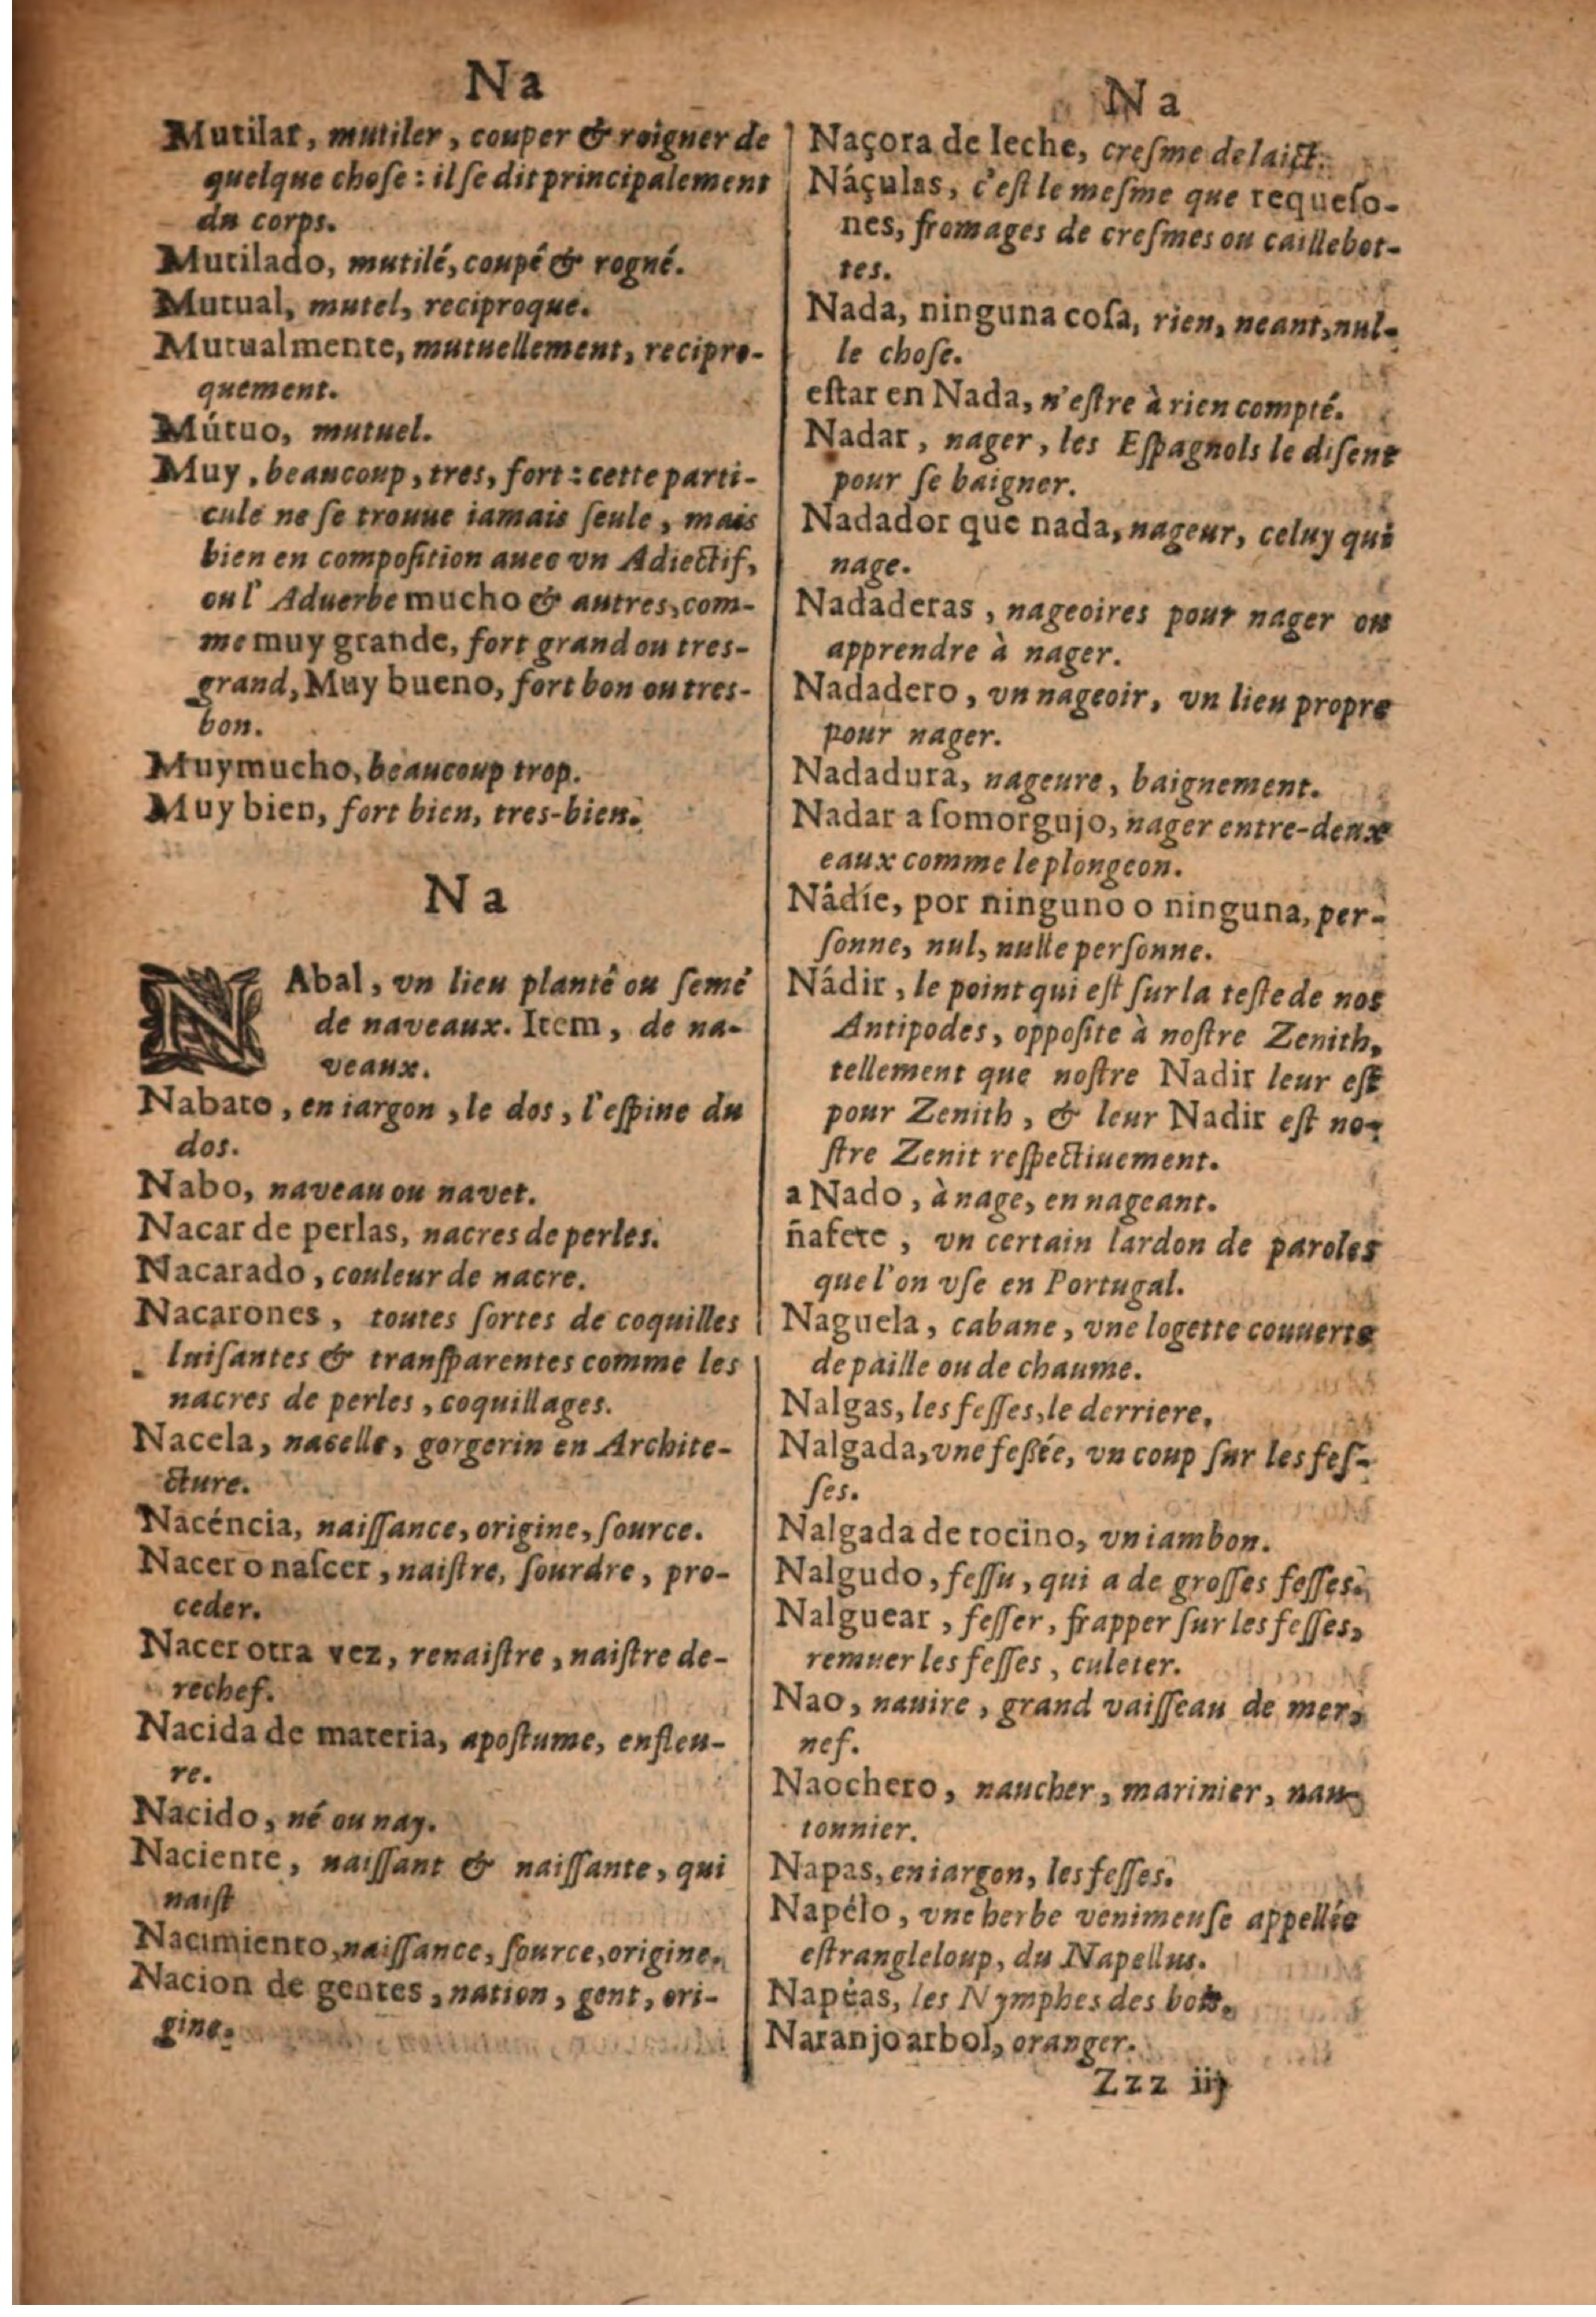 Na
Mutilar, mutiler, couper & roigner de
quelque choſe : il ſe dit principalement
du corps.
Mutilado, mutilé, coupé & rogné.
Mutual, mutel, reciproque.
Mutualmente, mutuellement, recipro-
quement.
Mútuo, mutuel.
Muy, beaucoup, tres, fort : cette parti-
cule ne ſe trouue iamais ſeule, mais
bien en compoſition auec vn Adiectif,
ou l'Aduerbe mucho & autres, com-
me muy grande, fort grand ou tres-
grand, Muy bueno, fort bon ou tres-
bon.
Muy mucho, beaucoup trop.
Muy bien, fort bien, tres-bien.
Na
NAbal, vn lieu planté ou ſemé
de naveaux. Item, de na-
veaux.
Nabato, en iargon, le dos, l'eſpine du
dos.
Nabo, naveau ou navet.
Nacar de perlas, nacres de perles.
Nacarado, couleur de nacre.
Nacarones, toutes ſortes de coquilles
luiſantes & tranſparentes comme les
nacres de perles, coquillages.
Nacela, nacelle, gorgerin en Archite-
cture.
Nacéncia, naiſſance, origine, ſource.
Nacer o naſcer, naiſtre, ſourdre, pro-
ceder.
Nacer otra vez, renaiſtre, naiſtre de-
rechef.
Nacida de materia, apoſtume, enfleu-
re.
Nacido, né ou nay.
Naciente, naiſſant & naiſſante, qui
naiſt
Nacimiento, naiſſance, ſource, origine.
Nacion de gentes, nation, gent, ori-
gine.
Na
Naçora de leche, creſme de laict.
Náçulas, c'eſt le meſme que requeſo-
nes, fromages de creſmes ou caillebot-
tes.
Nada, ninguna coſa, rien, neant, nul-
le choſe.
eſtar en Nada, n'eſtre à rien compté.
Nadar, nager, les Eſpagnols le diſent
pour ſe baigner.
Nadador que nada, nageur, celuy qui
nage.
Nadaderas, nageoires pour nager ou
apprendre à nager.
Nadadero, vn nageoir, vn lieu propre
pour nager.
Nadadura, nageure, baignement.
Nadar a ſomorgujo, nager entre-deux
eaux comme le plongeon.
Nâdíe, por ninguno o ninguna, per-
ſonne, nul, nulle perſonne.
Nádir, le point qui eſt ſur la teſte de nos
Antipodes, oppoſite à noſtre Zenith,
tellement que noſtre Nadir leur eſt
pour Zenith, & leur Nadir eſt no-
ſtre Zenit reſpectiuement.
a Nado, à nage, en nageant.
ñafete, vn certain lardon de paroles
que l'on vſe en Portugal.
Naguela, cabane, vne logette couuerte
de paille ou de chaume.
Nalgas, les feſſes, le derriere,
Nalgada, vne feßée, vn coup ſur les feſ-
ſes.
Nalgada de tocino, vn iambon.
Nalgudo, feſſu, qui a de groſſes feſſes.
Nalguear, feſſer, frapper ſur les feſſes,
remuer les feſſes, culeter.
Nao, nauire, grand vaiſſeau de mer,
nef.
Naochero, naucher, marinier, nau-
tonnier.
Napas, en iargon, les feſſes.
Napélo, vne herbe venimeuſe appellée
eſtrangleloup, du Napellus.
Napéas, les Nymphes des bois.
Naranjo arbol, oranger.
Zzz iij